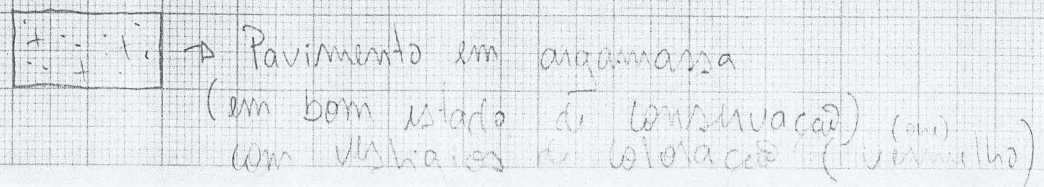 → Pavimento em argamassa
(em bom estado de conservação)
com vestígios de coloração (vermelho)